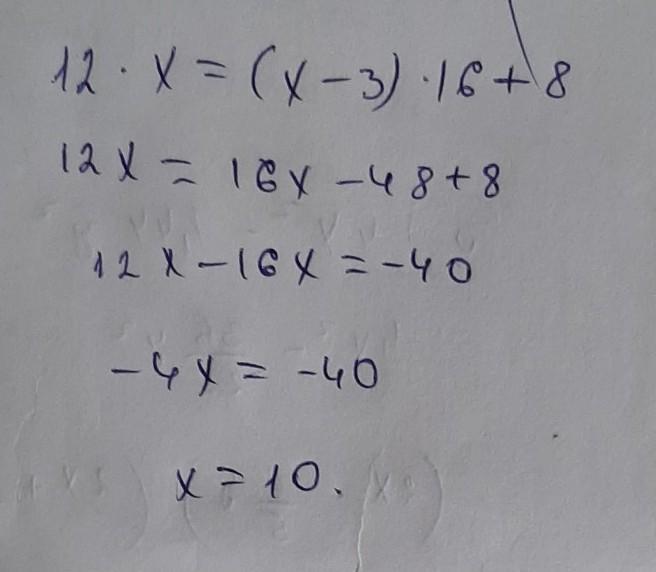 12 · x = (x - 3) · 16 + 8
12x = 16x - 48 + 8
12x - 16x = -40
-4x = -40
x = 10.